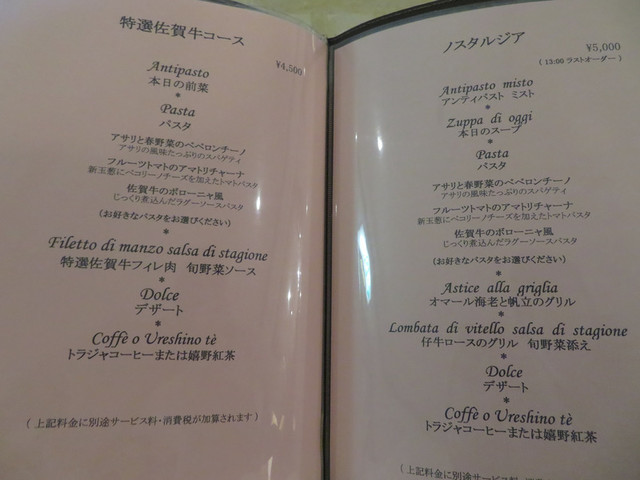 特選佐賀牛コース
¥4,500
Antipasto
本日の前菜
*
Pasta
パスタ
アサリと春野菜のペペロンチーノ
アサリの風味たっぷりのスパゲティ
フルーツトマトのアマトリチャーナ
新玉葱にペコリーノチーズを加えたトマトパスタ
佐賀牛のボローニャ風
じっくり煮込んだラグーソースパスタ
(お好きなパスタをお選びください)
*
Filetto di manzo salsa di stagione
特選佐賀牛フィレ肉 旬野菜ソース
*
Dolce
デザート
*
Coffè o Ureshino tè
トラジャコーヒーまたは嬉野紅茶
(上記料金に別途サービス料・消費税が加算されます)
ノスタルジア
¥5,000
(13:00 ラストオーダー)
Antipasto misto
アンティパスト ミスト
*
Zuppa di oggi
本日のスープ
*
Pasta
パスタ
アサリと春野菜のペペロンチーノ
アサリの風味たっぷりのスパゲティ
フルーツトマトのアマトリチャーナ
新玉葱にペコリーノチーズを加えたトマトパスタ
佐賀牛のボローニャ風
じっくり煮込んだラグーソースパスタ
(お好きなパスタをお選びください)
*
Astice alla griglia
オマール海老と帆立のグリル
*
Lombata di vitello salsa di stagione
仔牛ロースのグリル 旬野菜添え
*
Dolce
デザート
*
Coffè o Ureshino tè
トラジャコーヒーまたは嬉野紅茶
(上記料金に別途サービス料・